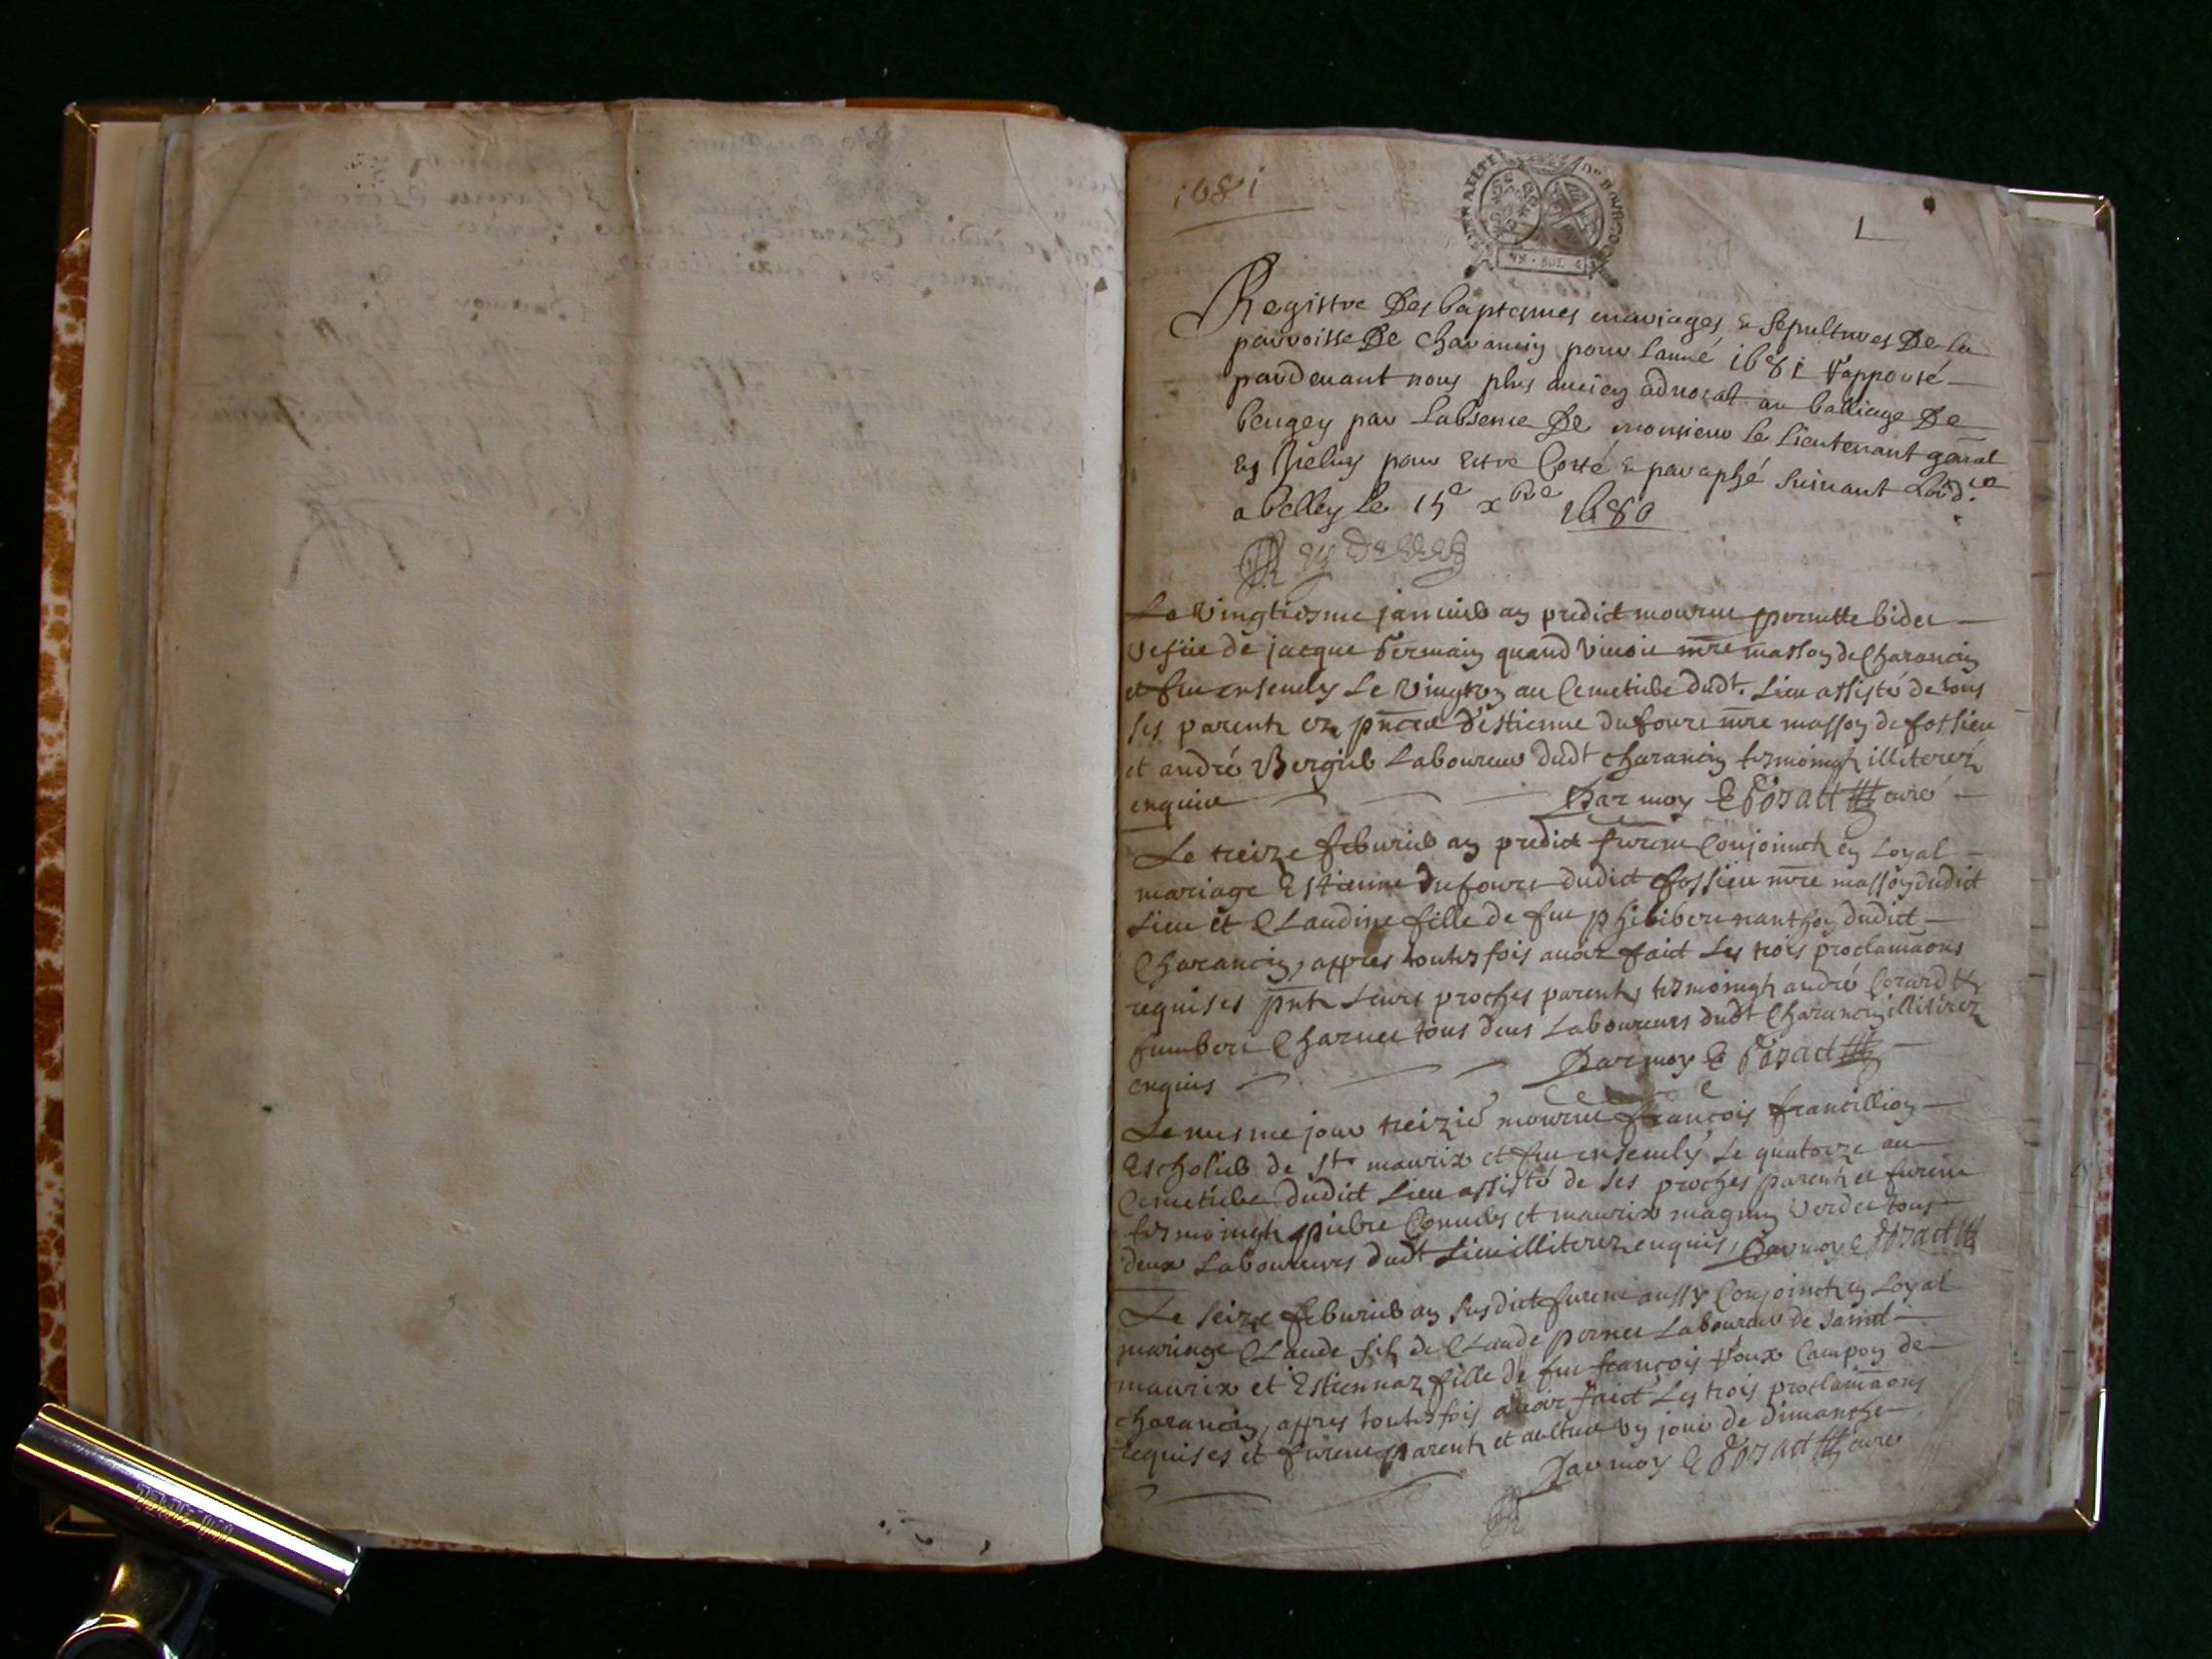 1681
1
Registre Des baptesmes mariages & Sepultures De la
parroisse De charancin pour lanné 1681 rapporté
pardevant nous plus ancien advocat au balliage De
beugey par labsence De monsieur le Lieutenant gnãal
pour estre Cotté & paraphé suivant Lord.ce
a belley Le 15e xbre 1680
Le vingtiesme janvier an predict mourut pernette bidet
vefue de jacque Germain quand vivoit mre masson de Charancin
et fut ensevely Le vingt un au Cemetiere dudt. Lieu assisté de tous
ses parents en pnce d'estienne dufour mre masson de fossieu
et andré Bergier Laboureur dudt charancin tesmoings illiterez
enquis Par moy curé
Le treize febvrier an predict furent Conjoincts en Loyal
mariage Estienne dufour dudict fossieu mre masson dudict
Lieu et Claudine fille de fut philibert nanthon dudict
Charancin, appres toutesfois avoir faict Les trois proclamãons
requises pnts Leurs proches parents, tesmoings andré
humbert Charvet tous deus Laboureurs dudt Charancin illiterez
enquis Par moy
Le mesme jour treizie mourut francois francillion
Escholier de st maurix et fut ensevely Le quatorze au
Cemetiere dudict Lieu assisté de ses proches parents et furent
tesmoings pierre et maurix magnin verdet tous
deux Laboureurs dudt Lieu illiterez enquis, Par moy
Le seize febvrier an susdict furent aussy Conjoincts en Loyal
mariage Claude fils de Claude pernet Laboureur de saint
maurix et Estiennaz fille de fut francois roux Campon de
charancin, appres toutesfois avoir faict Les trois proclamãons
requises et furent parents et aultre un jour de dimanche
Par moy curé